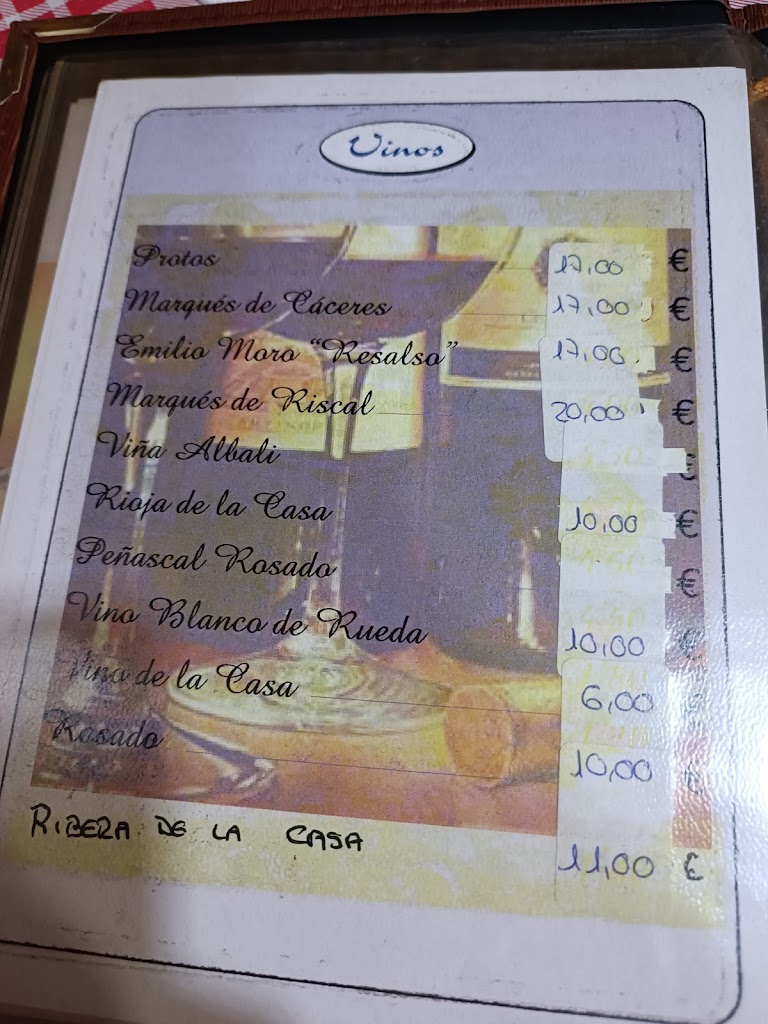 Vinos
Protos 17,00 €
Marqués de Cáceres 17,00 €
Emilio Moro "Resalso" 17,00 €
Marqués de Riscal 20,00 €
Viña Albali €
Rioja de la Casa 10,00 €
Peñascal Rosado €
Vino Blanco de Rueda 10,00 €
Vino de la Casa 6,00 €
Rosado 10,00 €
RIBERA DE LA CASA 11,00 €